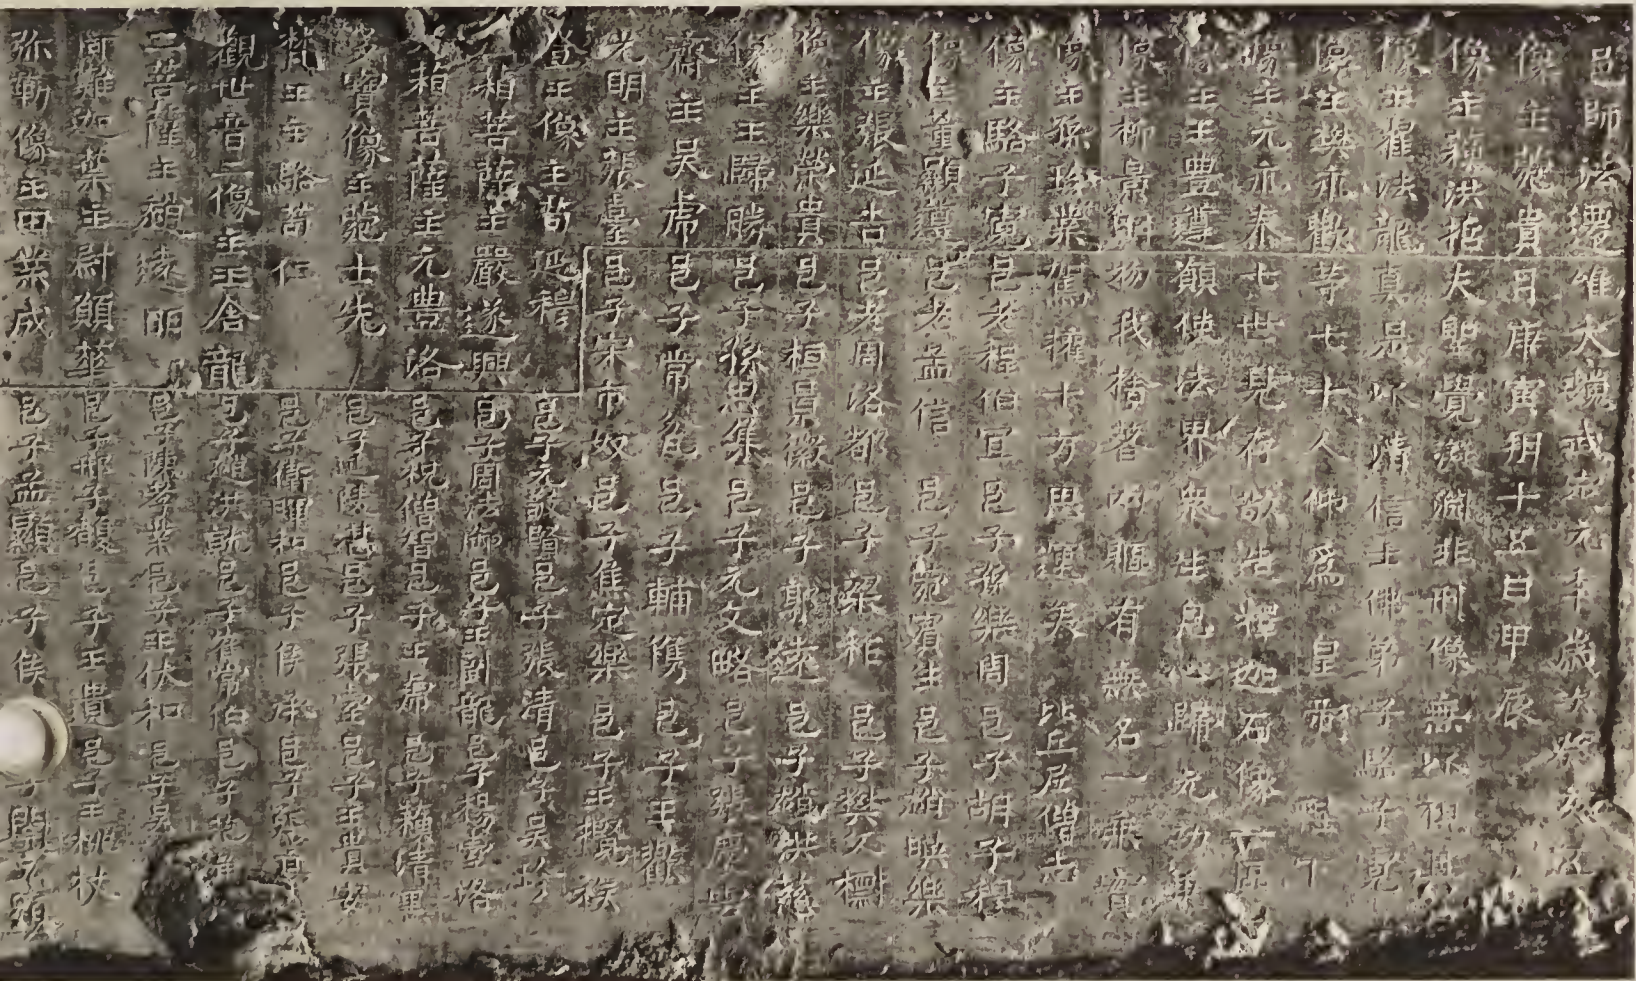 邑師法 唯大魏武定元年歲次癸亥
像主菀貴月庚寅朔十五日甲辰
像主蘓洪哲夫聖覺湛淵非刑像無以視
像主崔法龍真是以清信士佛弟子駱子寬
像主樊永歡等七十人仰為皇帝陛下
像主元永泰七世見存敬造釋迦石像一區
像主王豊遵願使法界衆生息心歸元功
像主柳景斛物我楷著內軀有無名一乘寶
像主孫珍業駕擁十方思運矣 比丘尼僧志
像主駱子寬邑老程伯宜邑子孫樂周邑子胡子程
像主董顯遵邑老孟信 邑子菀賓生邑子趙暎樂
像主張延吉邑老周洛都邑子梁祚邑子樊久樹
像主樂榮貴邑子桓景徽邑子鄭遠邑子趙洪慈
像主王歸勝邑子孫思集邑子元文略邑子慶雲
齋主吴虎邑子常能邑子輔儁邑子王歡
光明主張臺邑子宋市奴邑子焦定樂邑子王攪族
登王像主昝延穆邑子元敬賢邑子張清邑子吴珍
葙菩薩主嚴遂興邑子周法御邑子王劉龍邑子楊零洛
右葙菩薩主元豊洛邑子祝僧智邑子王虎邑子蘓清黑
多寶像主菀士先邑子延陵邑子張臺邑子王貴安
梵王主駱苟仁邑子衛曜和邑子侯承邑子張
觀世音二像主王舍龍邑子趙洪就邑子崔常伯邑子菀
二菩薩主趙遠明邑子陳考業邑子王伏和邑子吴
阿難迦葉主尉顛華邑子邢子馥邑子王貴邑子王桃杖
弥勒像主田業成邑子孟顯邑子侯 子閻顯